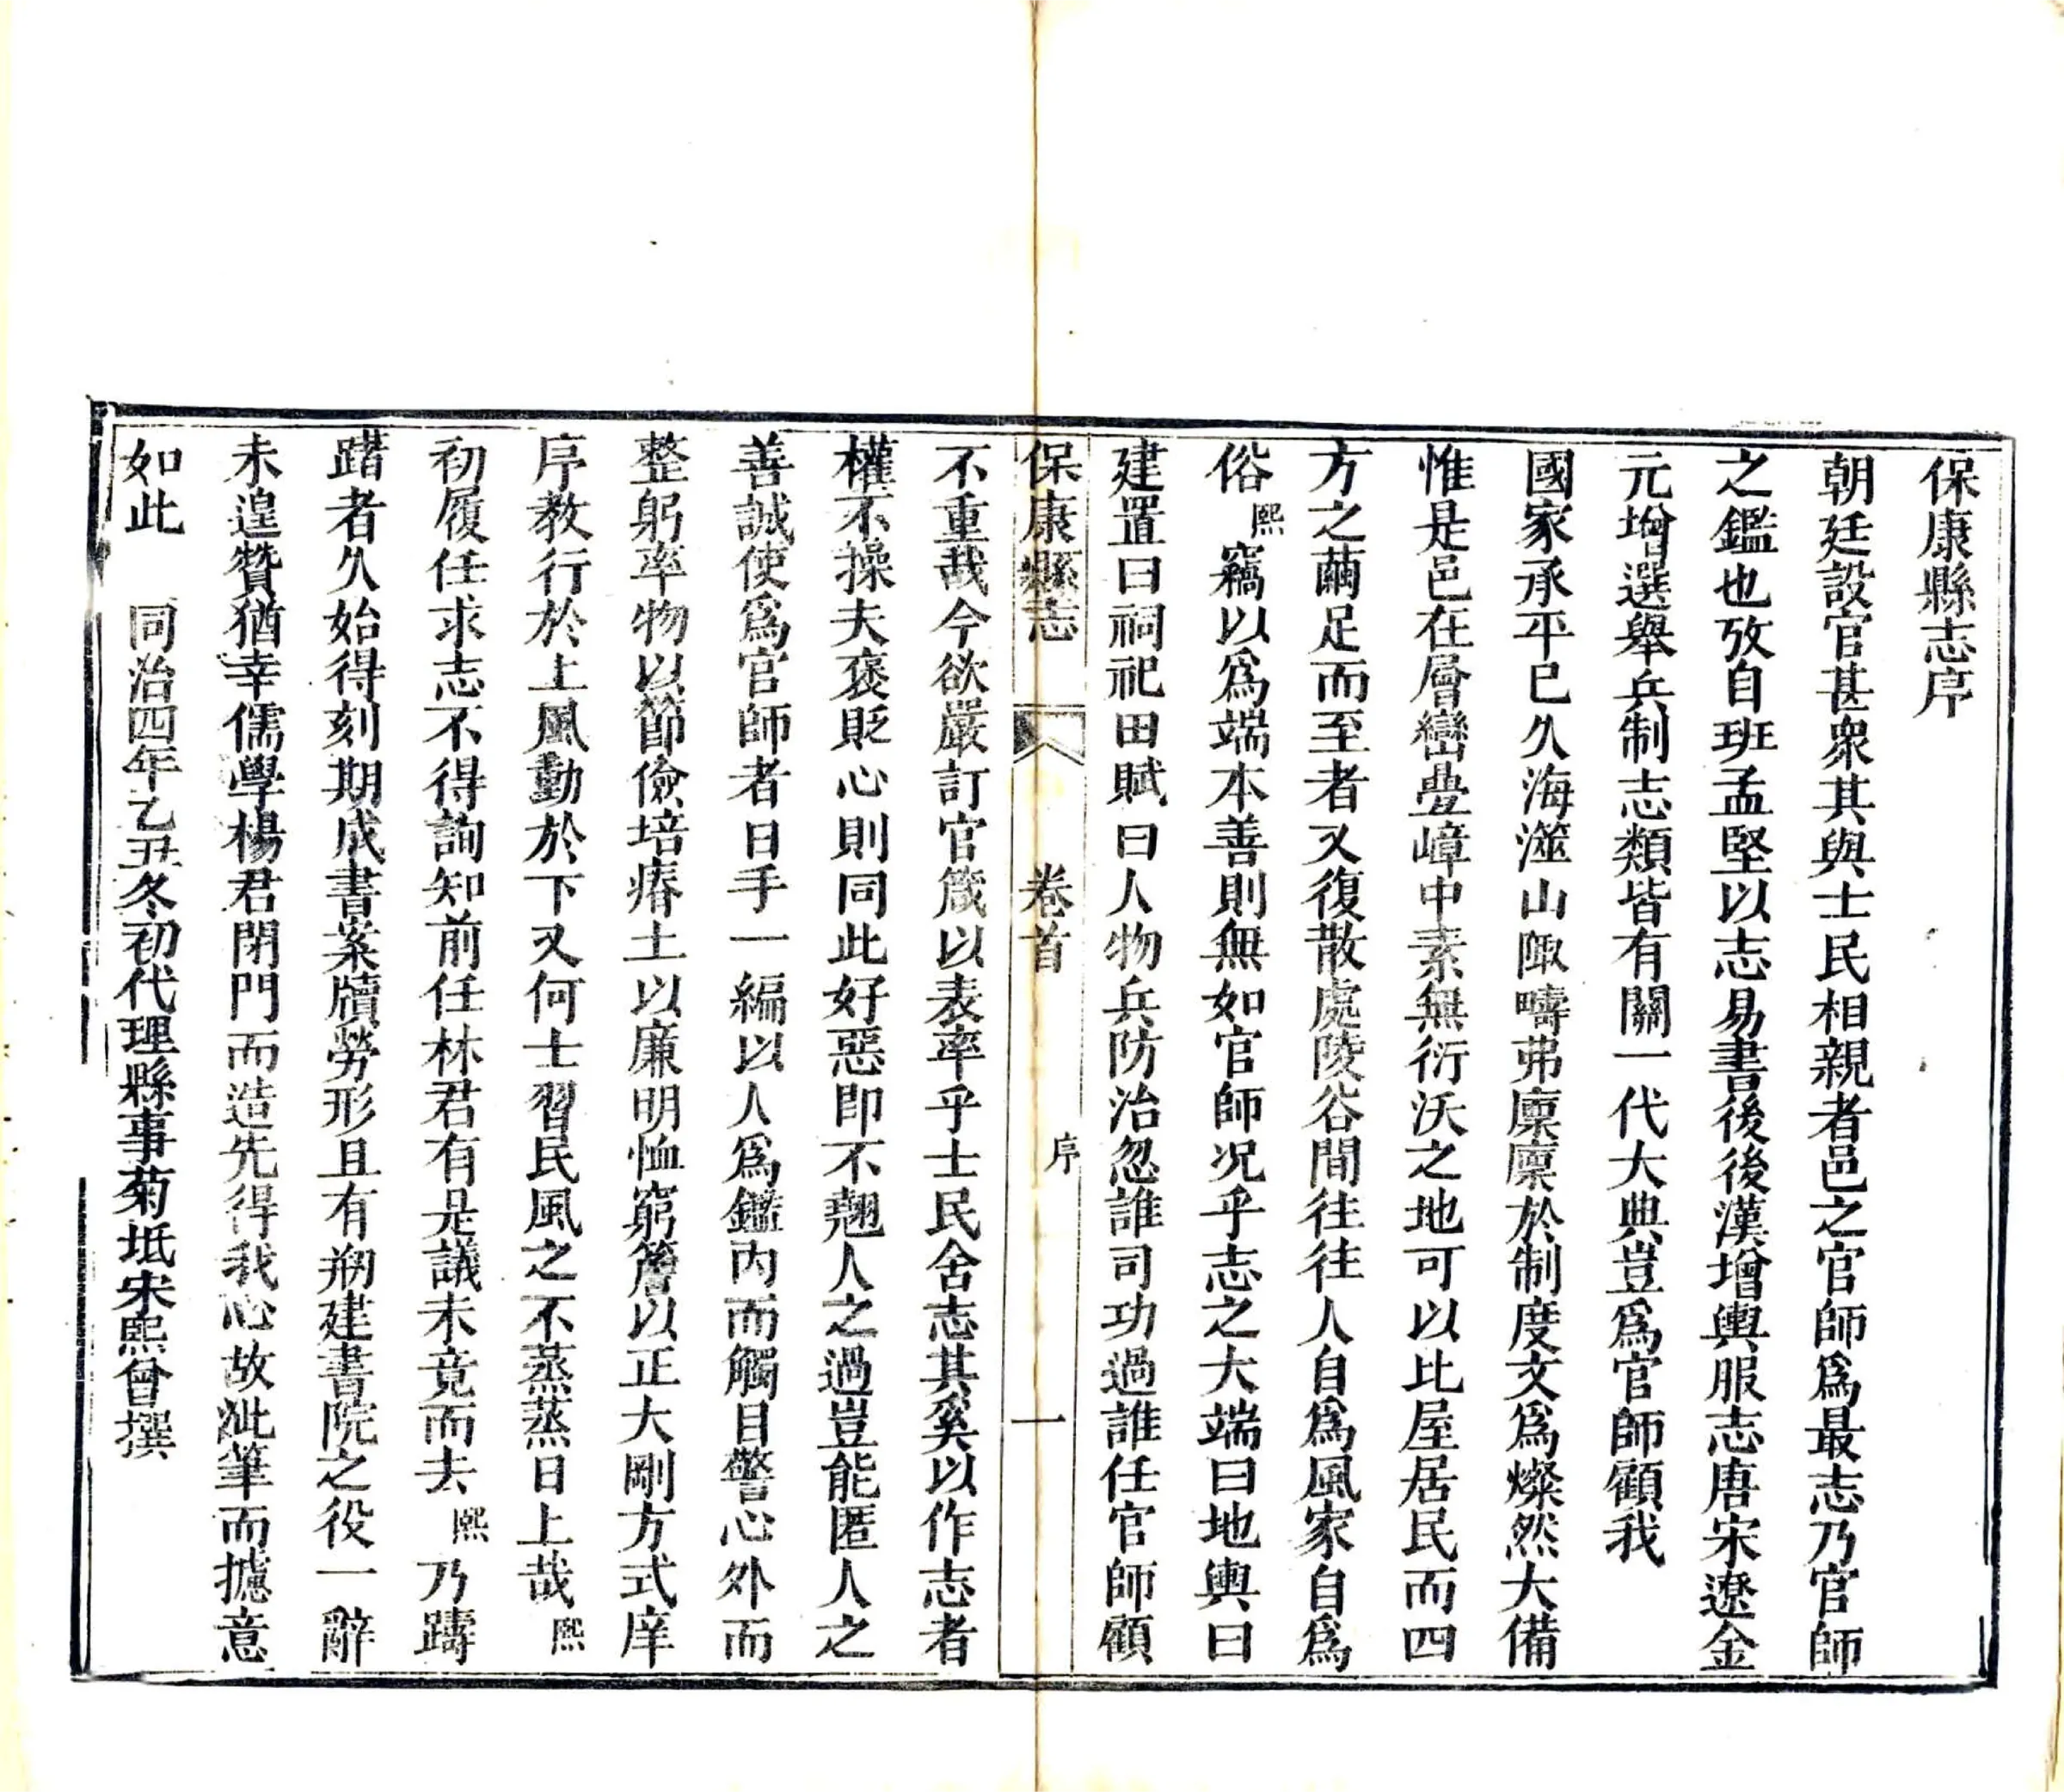 保康縣志序
朝廷設官甚衆其與士民相親者邑之官師爲最志乃官師
之鑑也攷自班孟堅以志易書後後漢增輿服志唐宋遼金
元增選舉兵制志類皆有關一代大典豈爲官師顧我
國家承平已久海澨山陬疇弗廩廩於制度文爲燦然大備
惟是邑在層巒疊嶂中素無衍沃之地可以比屋居民而四
方之繭足而至者又復散處陵谷間往往人自爲風家自爲
俗熙竊以爲端本善則無如官師况乎志之大端曰地輿曰
建置曰祠祀田賦曰人物兵防治忽誰司功過誰任官師顧
保康縣志 卷首 序 一
不重哉今欲嚴訂官箴以表率乎士民舍志其奚以作志者
權不操夫褒貶心則同此好惡即不翹人之過豈能匿人之
善誠使爲官師者日手一編以人爲鑑內而觸目警心外而
整躬率物以節儉培瘠土以廉明恤窮簷以正大剛方式庠
序教行於上風動於下又何士習民風之不蒸蒸日上哉熙
初履任求志不得詢知前任林君有是議未竟而去熙乃躊
躇者久始得刻期成書案牘勞形且有剏建書院之役一辭
未遑贊猶幸儒學楊君閉門而造先得我心故泚筆而攄意
如此 同治四年乙丑冬初代理縣事菊坻宋熙曾撰